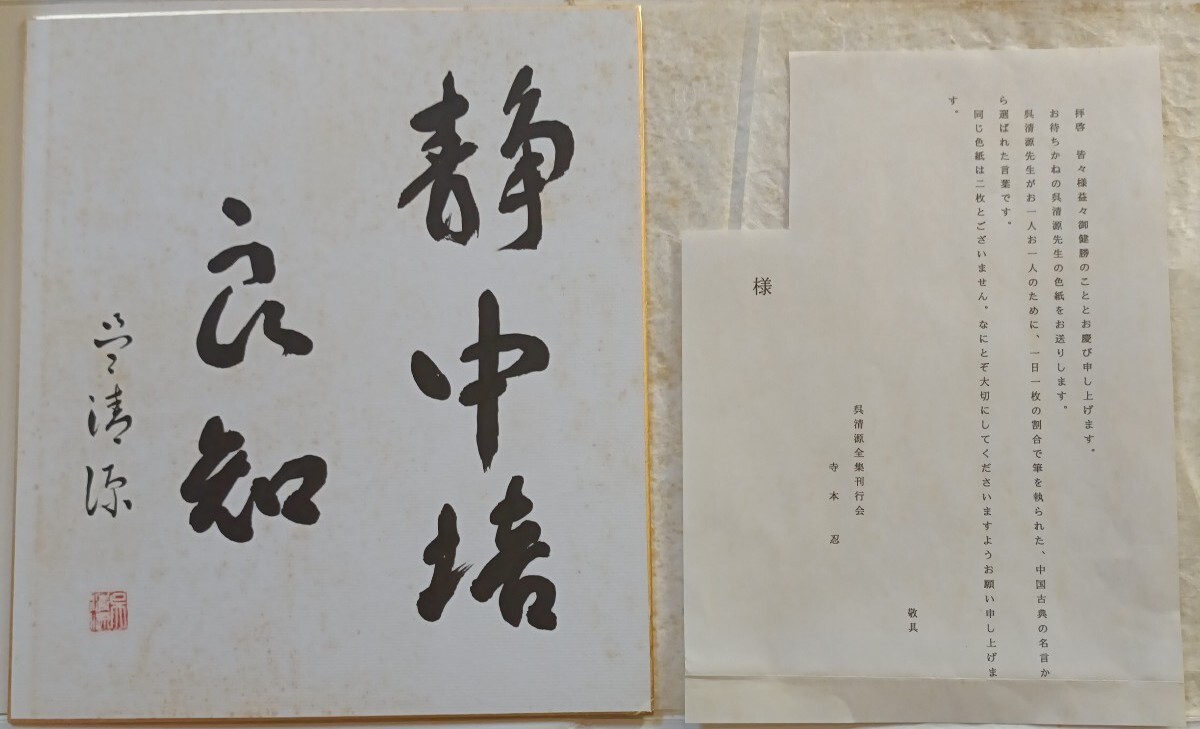 静中培
良知
呉清源
拝啓 皆々様益々御健勝のこととお慶び申し上げます。
お待ちかねの呉清源先生の色紙をお送りします。
呉清源先生がお一人お一人のために、一日一枚の割合で筆を執られた、中国古典の名言か
ら選ばれた言葉です。
同じ色紙は二枚とございません。なにとぞ大切にしてくださいますようお願い申し上げま
す。
敬具
呉清源全集刊行会
寺本 忍
様